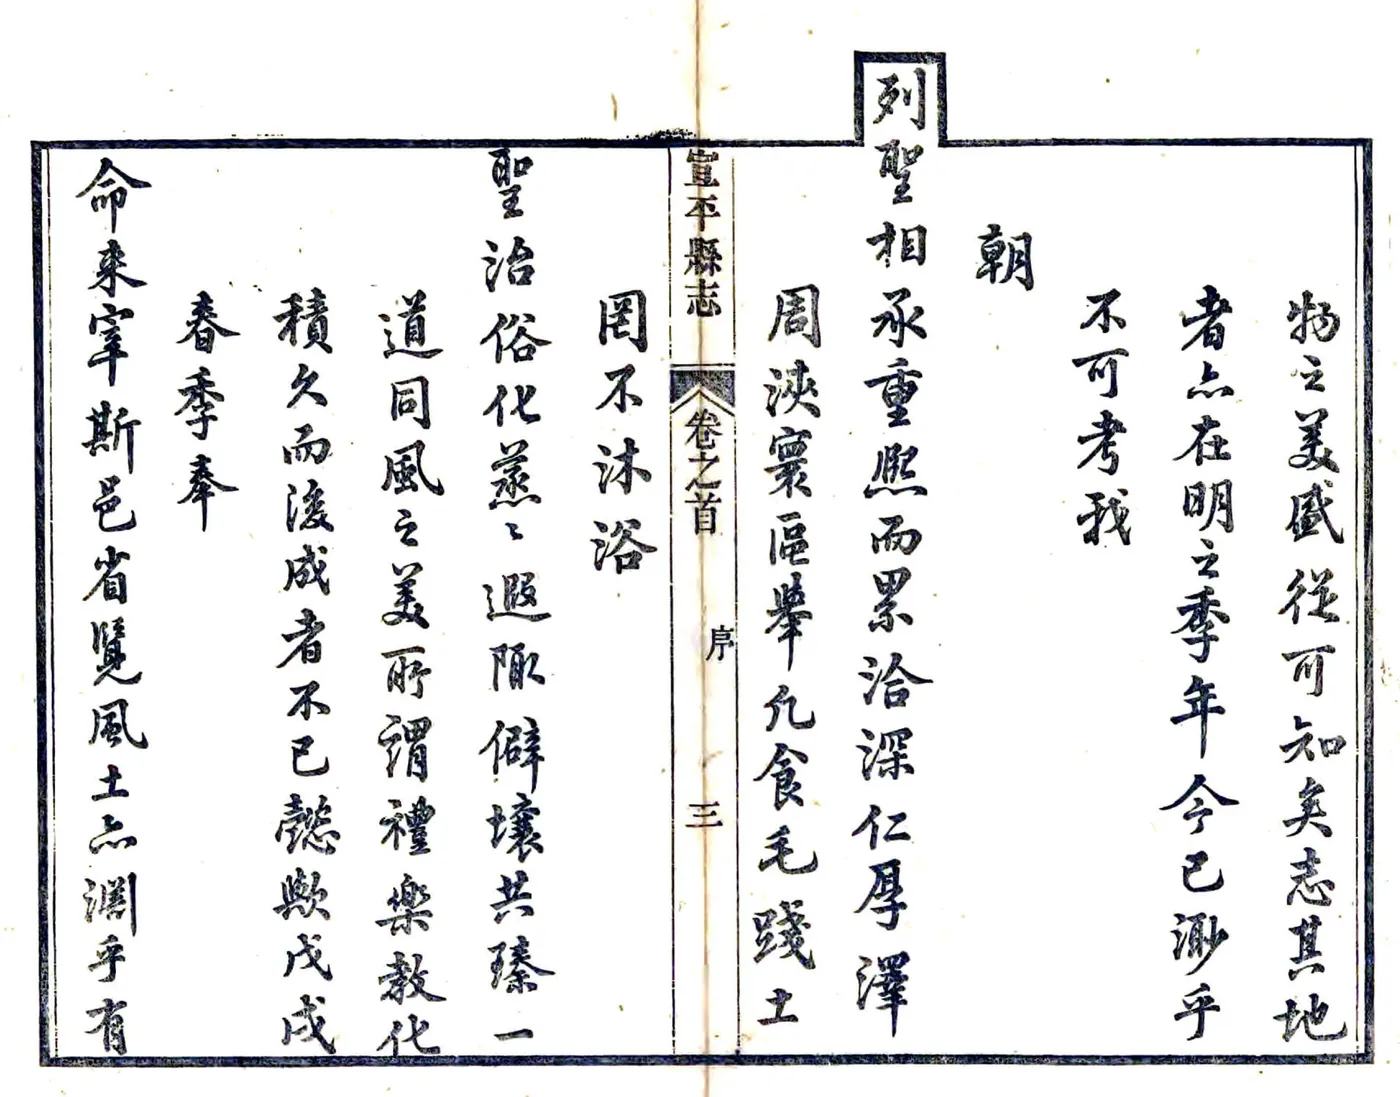 物之美盛從可知矣志其地
者亦在明之季年今已渺乎
不可考我
朝
列聖相承重熙而累洽深仁厚澤
周浹寰區舉凡食毛踐土
宣平縣志 卷之首 序 三
罔不沐浴
聖治俗化蒸〻遐陬僻壤共臻一
道同風之美所謂禮樂教化
積久而後成者不已懿歟戊戌
春季奉
命来宰斯邑省覽風土亦淵乎有